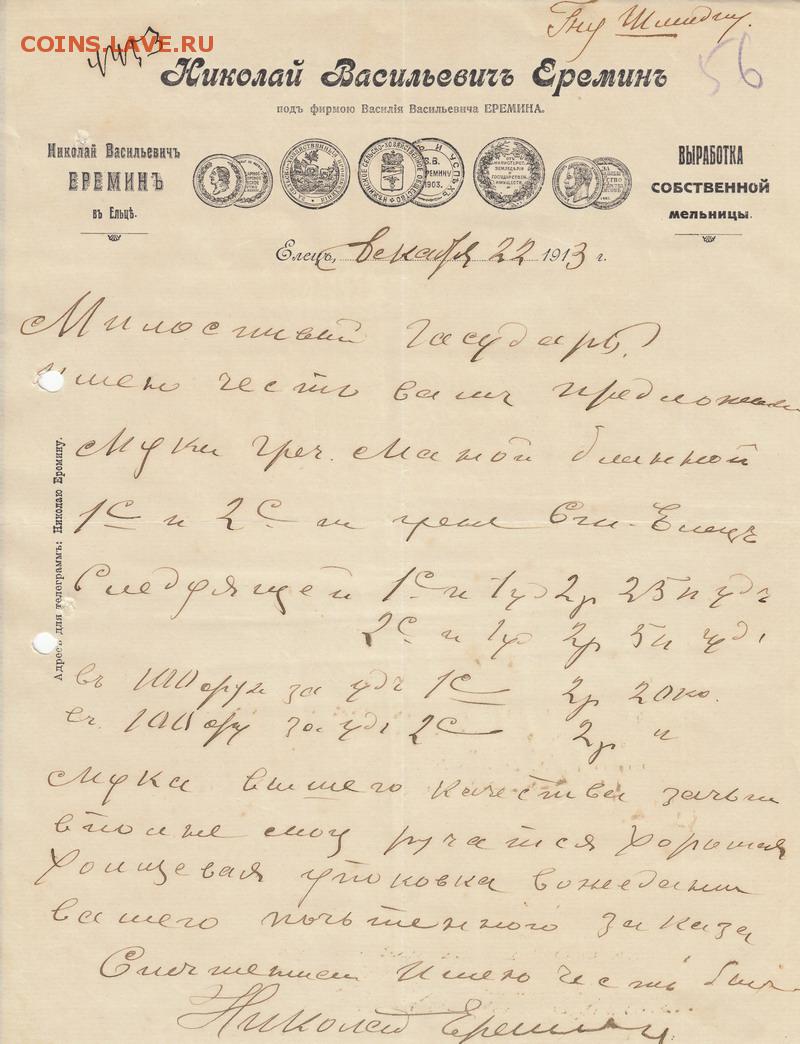 COINS.LAVE.RU
Гну Шмидту.
4453
56
Николай Васильевичъ Ереминъ
подъ фирмою Василія Васильевича ЕРЕМИНА.
Николай Васильевичъ
ЕРЕМИНЪ
въ Ельцѣ.
ВЫРАБОТКА
СОБСТВЕННОЙ
МЕЛЬНИЦЫ.
Елецъ, декабря 22 1913 г.
Милостивый Государь.
имею честь вамъ предложить
Муки греч. маной блинной
1С и 2С Ст. Елецъ
Следующей 1С 2р 25
2С 2р 5
въ 100 за 1С 2р 20 ко.
въ 100 за 2С 2р "
Мука вышего качества зачем
вполне могу ручатся хорошая
холщевая упоковка вожедании
вашего почьтенного заказа
Спочтением Имею честь быть
Николай Еремин
Адресъ для телеграммъ: Николаю Еремину.